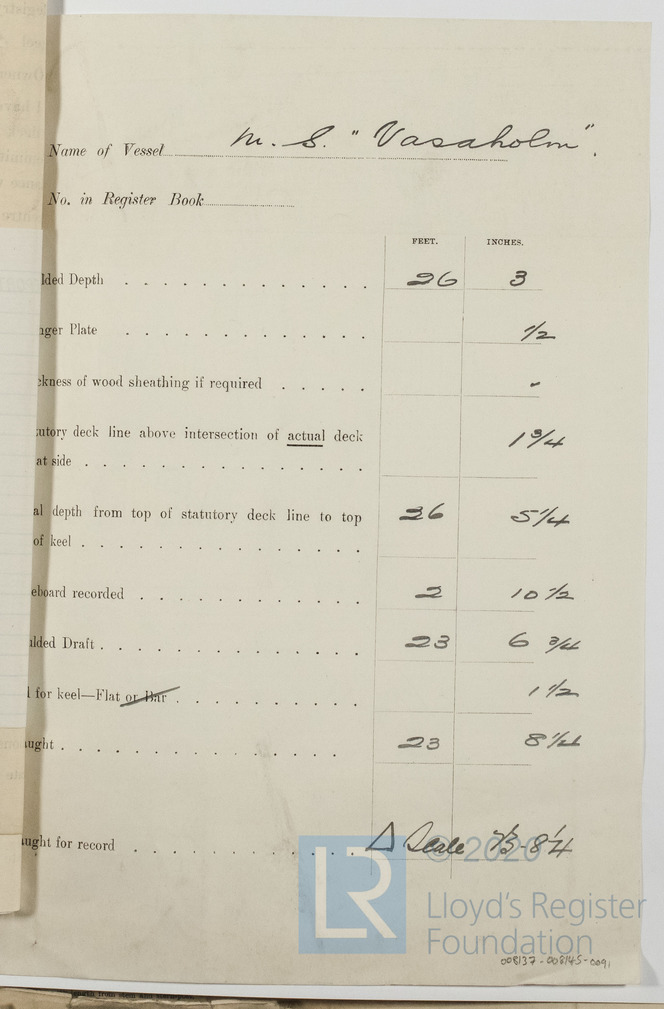 Name of Vessel M. S. "Vasaholm".
No. in Register Book
FEET. INCHES.
lded Depth 26 3
nger Plate 1/2
ckness of wood sheathing if required "
utory deck line above intersection of actual deck
at side 1 3/4
al depth from top of statutory deck line to top
of keel 26 5 1/4
eboard recorded 2 10 1/2
ulded Draft 23 6 3/4
l for keel—Flat or Bar 1 1/2
ught 23 8 1/4
ught for record Δ Scale 23-8 1/4
© 2020
LR
Lloyd's Register
Foundation
008137-008145-0091